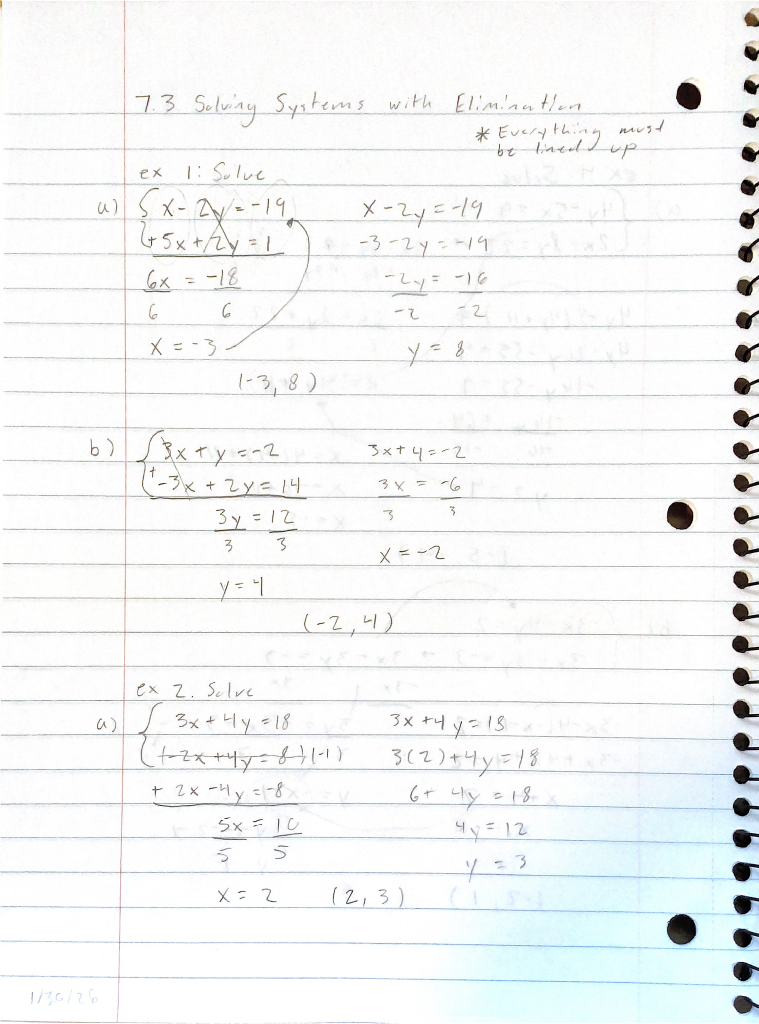 7.3 Solving Systems with Elimination
* Everything must
be lined up
ex 1: Solve
a) { x - 2y = -19
+ 5x + 2y = 1
6x = -18
6 6
x = -3
x - 2y = -19
-3 - 2y = -19
-2y = -16
-2 -2
y = 8
(-3, 8)
b) { 3x + y = -2
+ -3x + 2y = 14
3y = 12
3 3
y = 4
3x + 4 = -2
3x = -6
3 3
x = -2
(-2, 4)
ex 2. Solve
a) { 3x + 4y = 18
(-2x + 4y = 8)(-1)
+ 2x - 4y = -8
5x = 10
5 5
x = 2
3x + 4y = 18
3(2) + 4y = 18
6 + 4y = 18
4y = 12
y = 3
(2, 3)
1/30/26